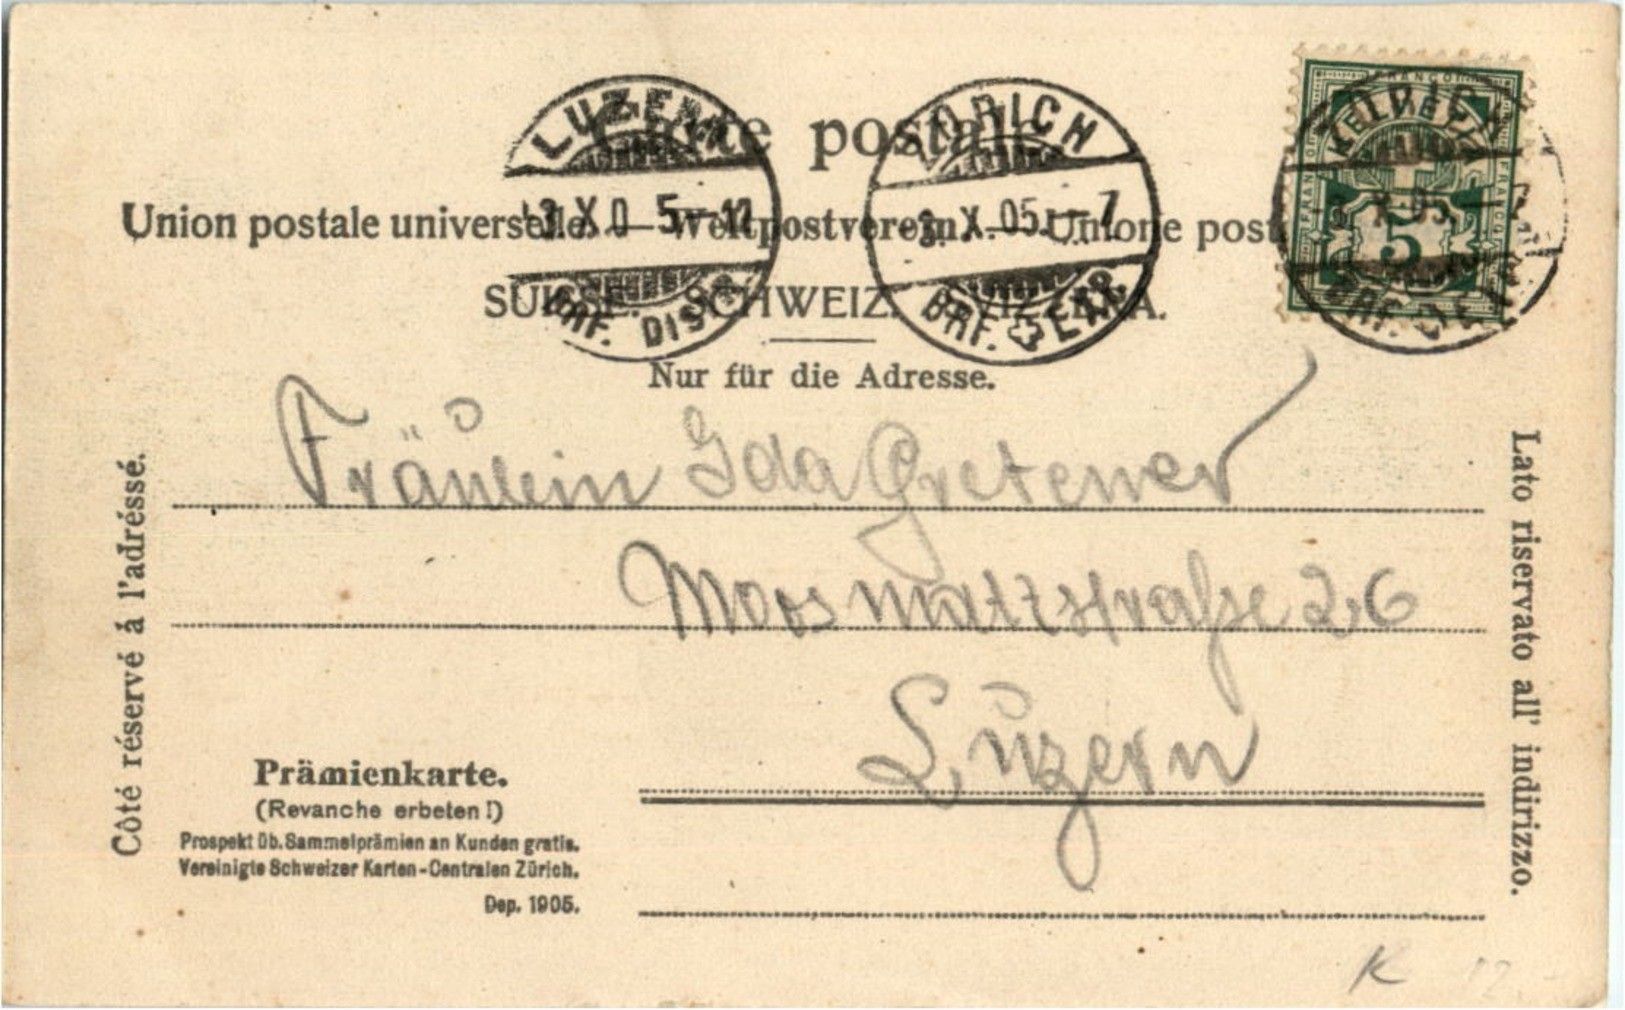 Carte postale
Union postale universelle. — Weltpostverein. — Unione post
SUISSE. SCHWEIZ. SVIZZERA.
Nur für die Adresse.
LUZERN
3.X.05.-12
BRF. DISTR.
ZÜRICH
-3.X.05.-7
BRF. EXP.
FRANCO
HELVETIA
5
FRANCO
FRANCO
ZÜRICH
BRF. EXP.
Côté réservé á l'adréssé.
Fräulein Ida Gretener
Moosmattstraße 26
Luzern
Lato riservato all' indirizzo.
Prämienkarte.
(Revanche erbeten!)
Prospekt üb. Sammelprämien an Kunden gratis.
Vereinigte Schweizer Karten-Centralen Zürich.
Dep. 1905.
K